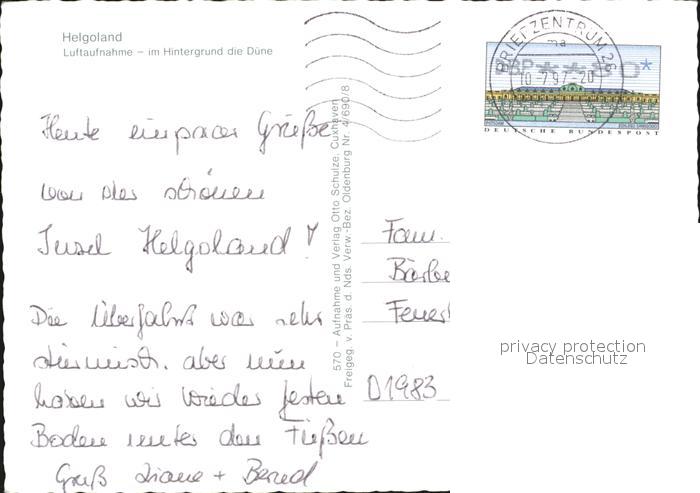 Helgoland
Luftaufnahme – im Hintergrund die Düne
BRIEFZENTRUM 26
ma
10.-7.97.-20
DBP ***80*
DEUTSCHE BUNDESPOST
Heute ein paar Grüße
von der schönen
Insel Helgoland!
Die Überfahrt war sehr
stürmisch. aber nun
haben wir wieder festen
Boden unter den Füßen
Gruß Liane + Bernd
570 – Aufnahme und Verlag Otto Schulze, Cuxhaven
Freigeg. v. Präs. d. Nds. Verw.-Bez. Oldenburg Nr. 4/690/8
Fam.
Bärbe
Feuer
D1983
privacy protection
Datenschutz